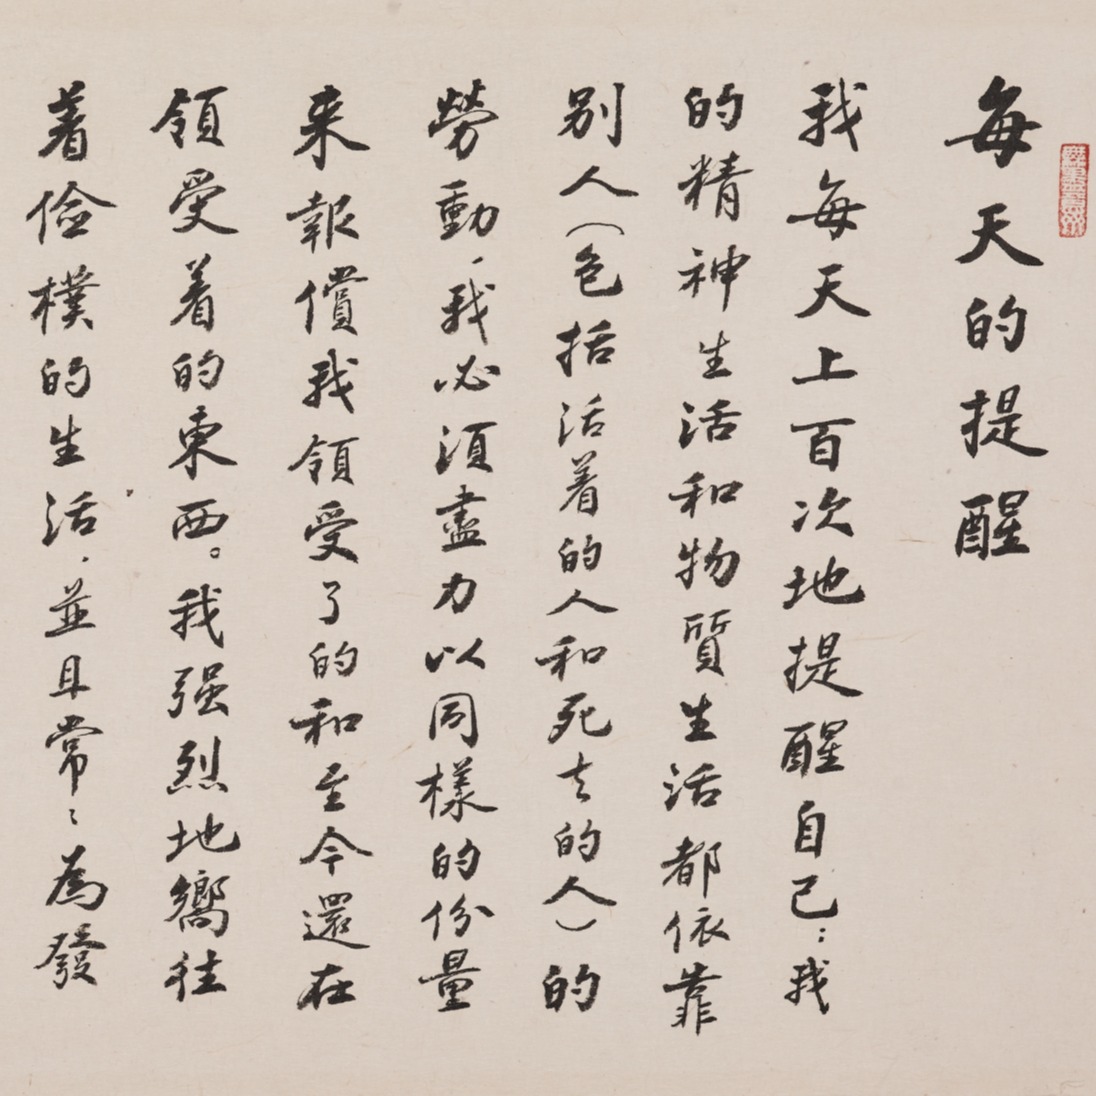 每天的提醒
我每天上百次地提醒自己：我
的精神生活和物質生活都依靠
别人（包括活着的人和死去的人）的
勞動，我必須盡力以同樣的份量
来報償我領受了的和至今還在
領受着的東西。我强烈地嚮往
着儉樸的生活，並且常〻為發